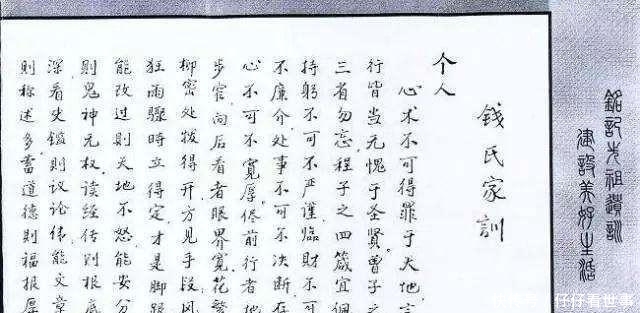 銘記先祖遺訓
建設美好生活
钱氏家训
个人
心术不可得罪于天地,言
行皆当无愧于圣贤曾子之
三省勿忘。程子之四箴宜佩
持躬不可不严谨。临财不可
不廉介处事不可不决断存
心不可不宽厚。侭前行者地
步窄,向后看者眼界宽。花繁
柳密处拨得开,方见手段风
狂雨骤时立得定,才是脚跟
能改过则天地不怒,能安分
则鬼神无权。读经传则根底
深看史鑑则议论伟能文章
则称述多蓄道德则福报厚
仔仔看世事